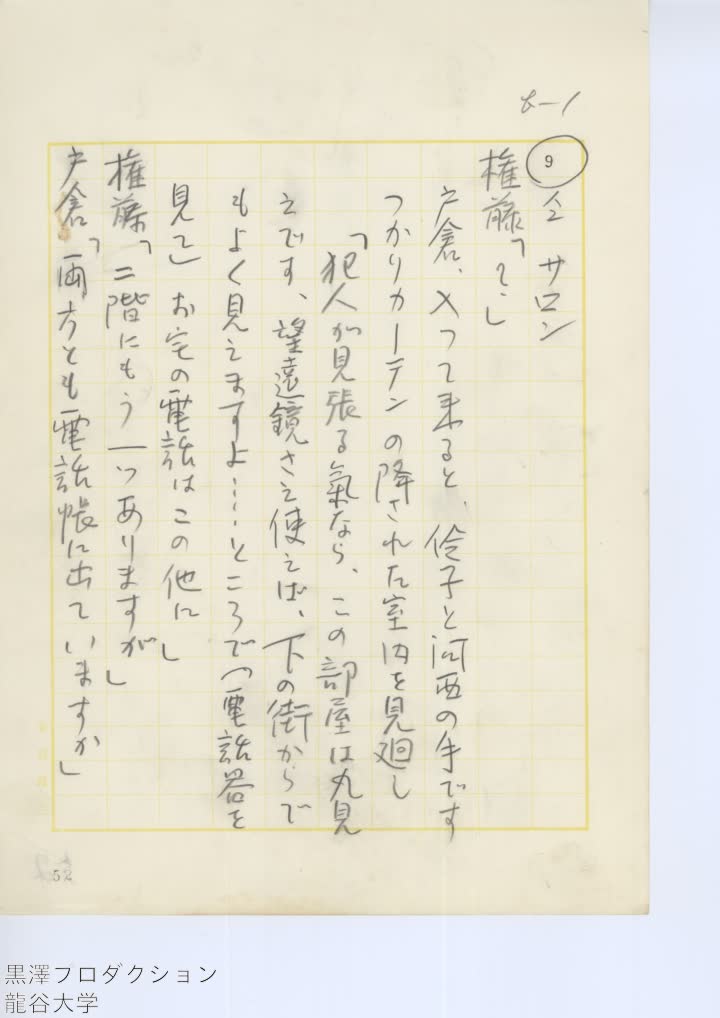 8-1
9
仝 サロン
権藤「?」
戸倉、入つて来ると、伶子と河西の手です
つかりカーテンの降された室内を見廻し
「犯人が見張る氣なら、この部屋は丸見
えです、望遠鏡さえ使えば、下の街からで
もよく見えますよ……ところで(電話器を
見て)お宅の電話はこの他に」
権藤「二階にもう一つありますが」
戸倉「両方とも電話帳に出ていますか」
52
黒澤プロダクション
龍谷大学